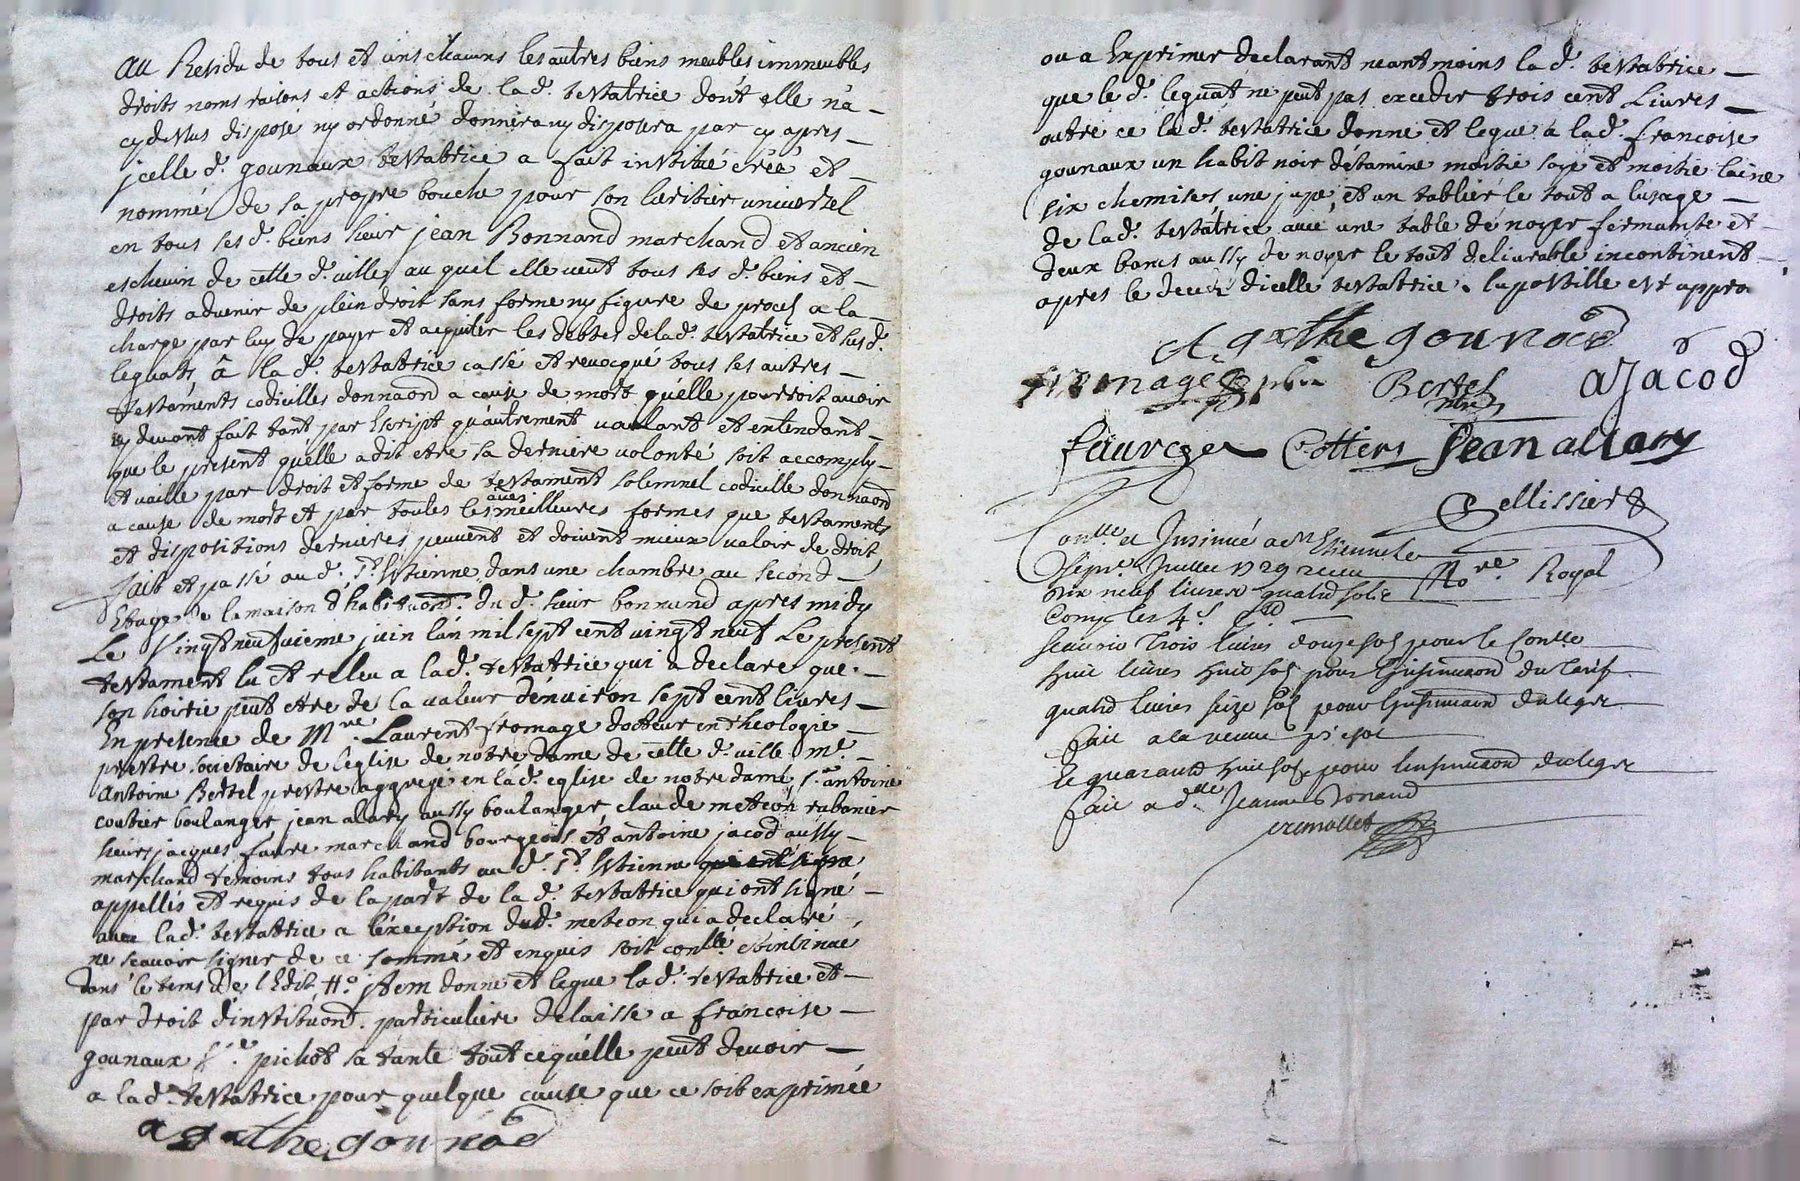 au Residu de tous et uns chacuns les autres biens meubles immeubles
droits noms raisons et actions de la d.^e testatrice dont elle n'a
cy dessus disposé ny ordonné donnera ny disposera par cy apres
jcelle d.^e gounaux testatrice a fait institué créé et
nommé de sa propre bouche pour son heritier universel
en tous ses d. biens sieur jean Bonnand marchand et ancien
eschevin de cette d. ville auquel elle veut tous ses d. biens et
droits advenir de plein droit sans forme ny figure de proces a la
charge par luy de payer et acquiter les debtes de la d. testatrice et sus d.
legats, â la d. testatrice cassé et revocqué tous ses autres
testaments codicilles donnaond a cause de mort qu'elle pourroit avoir
cy devant fait tant par Escript qu'autrement vaulant et entendant
que le present quelle a dit etre sa derniere volonté soit accomply
et vaille par droit et forme de testament solemnel codicille donnaond
a cause de mort et par toutes les meilleures formes que testaments
et dispositions dernieres peuvent et doivent mieux valoir de droit
fait et passé au d. S.^t Estienne dans une chambre au second
Etage de la maison d'habitaond. du d. sieur bonnand apres midy
Le Vingt neufvieme juin l'an mil sept cent vingt neuf Le present
testament lu et releu a la d. testatrice qui a declaré que
son hoirie peut etre de la valeur d'environ sept cent livres
En presence de M.^re Laurent fromage docteur en theologie
prestre societaire de l'eglise de notre dame de cette d. ville M.^e
Antoine Bertel prestre aggregé en la d. eglise de notre dame S.^r antoine
coutier boulanger jean alary aussy boulanger claude meteon rubanier
sieurs jacques faure marchand bourgeois et antoine jacod aussy
marchand temoins tous habitants au d. S.^t Estienne qui ont signé
appellés et requis de la part de la d. testatrice qui ont signé
avec la d. testatrice a l'exeption du d. meteon qui a declaré
ne scavoir signer de ce sommé et enquis soit conllé et insinué
dans le tems de l'Edit #. jtem donne et legue la d. testatrice et
par droit d'instituond. particuliere delaisse a francoise
gounaux pichot sa tante tout ce qu'elle peut devoir
a la d. testatrice pour quelque cause que ce soit exprimée
agathe gounod
ou a Exprimer declarant neantmoins la d. testatrice
que le d. legat ne peut pas exceder trois cent Livres
outre ce la d. testatrice donne et legue a la d. francoise
gounaux un habit noir d'étamine moitie soye et moitie laine
six chemises une jupe, et un tablier le tout a lusage
de la d. testatrice avec une table de noyer fermante et
deux bancs aussy de noyer le tout delivrable incontinent
apres le deces dicelle testatrice. la postille est appro
Agathe gounod
fromage Bertel ajacod
faure Cottier Jean allary
Pellissier
Con.^lle et Insinué a S.^t Etienne le
Sep.^me Juillet 1729 receu No.^re Royal
Dix neuf livres quatre sols
Compris les 4 s.
Scavoir Trois livres douze sols pour le Con.^lle
huit livres huit sols pour l'insinuaond du tarif
quatre livres seize sols pour l'insinuaond du legs
fait a la veuve pichot
Et quarante huit sols pour l'insinuaond du legs
fait a d.^lle Jeanne Bonand